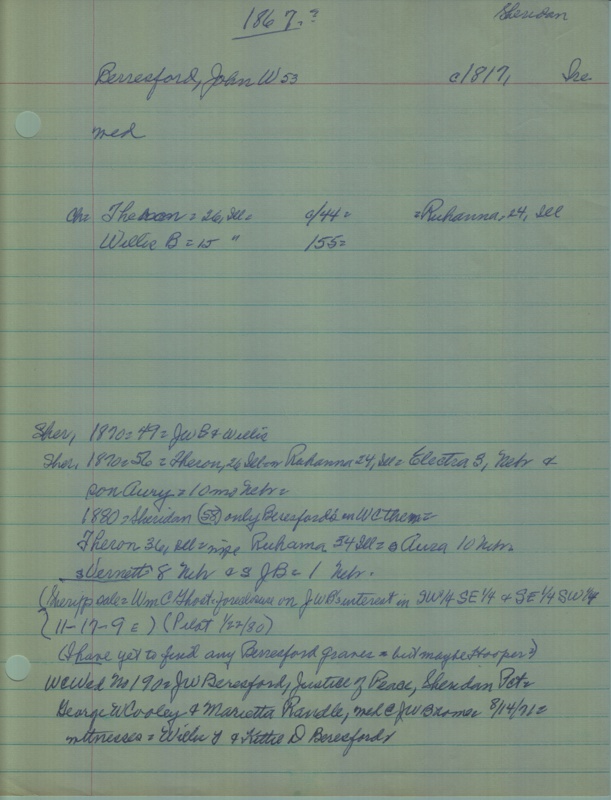 1867.? Sheridan
Berresford, John W 53 c1817, Ire.
med
Ch= Theron = 26, Ill= c/44= =Ruhanna, 24, Ill
Willis B = 15 " /55=
Sher, 1870=49= JWB & Willis
Sher, 1870=56= Theron, 26 Ill Ruhanna 24, Ill= Electra 3, Nebr &
son Aury = 10 mo Nebr=
1880=Sheridan 58 only Beresfords in WC then=
Theron 36, Ill= wife Ruhama 34 Ill= s Auza 10 Nebr.
s Vernett 8 Nebr & s JB = 1 Nebr.
(Sheriff's sale= Wm C Ghost foreclosure on JWB's interest in SW 1/4 SE 1/4 & SE 1/4 SW 1/4
11-17-9 E) (Pilot 1/22/80)
(I have yet to find any Berresford graves = but maybe Hooper?)
WC Wed No 190= JW Beresford, Justice of Peace, Sheridan Pct=
George W Cooley & Marietta Randle, med @ JWB home 8/14/71=
witnesses= Willis & Kittie D Beresford